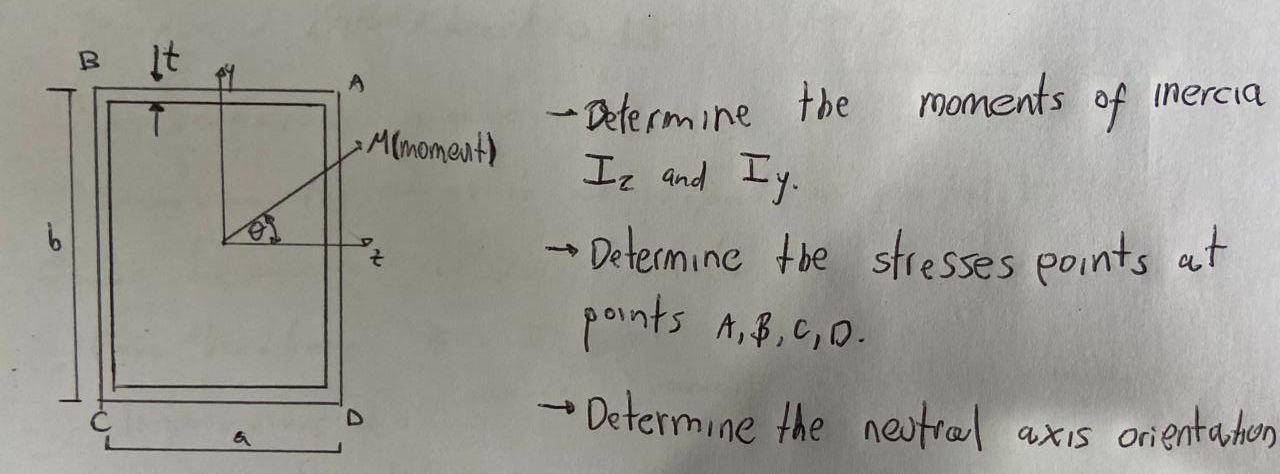 B
t
y
A
M(moment)
b
θ
z
C
D
a
→ Determine the moments of inercia
Iz and Iy.
→ Determine the stresses points at
points A, B, C, D.
→ Determine the neutral axis orientation